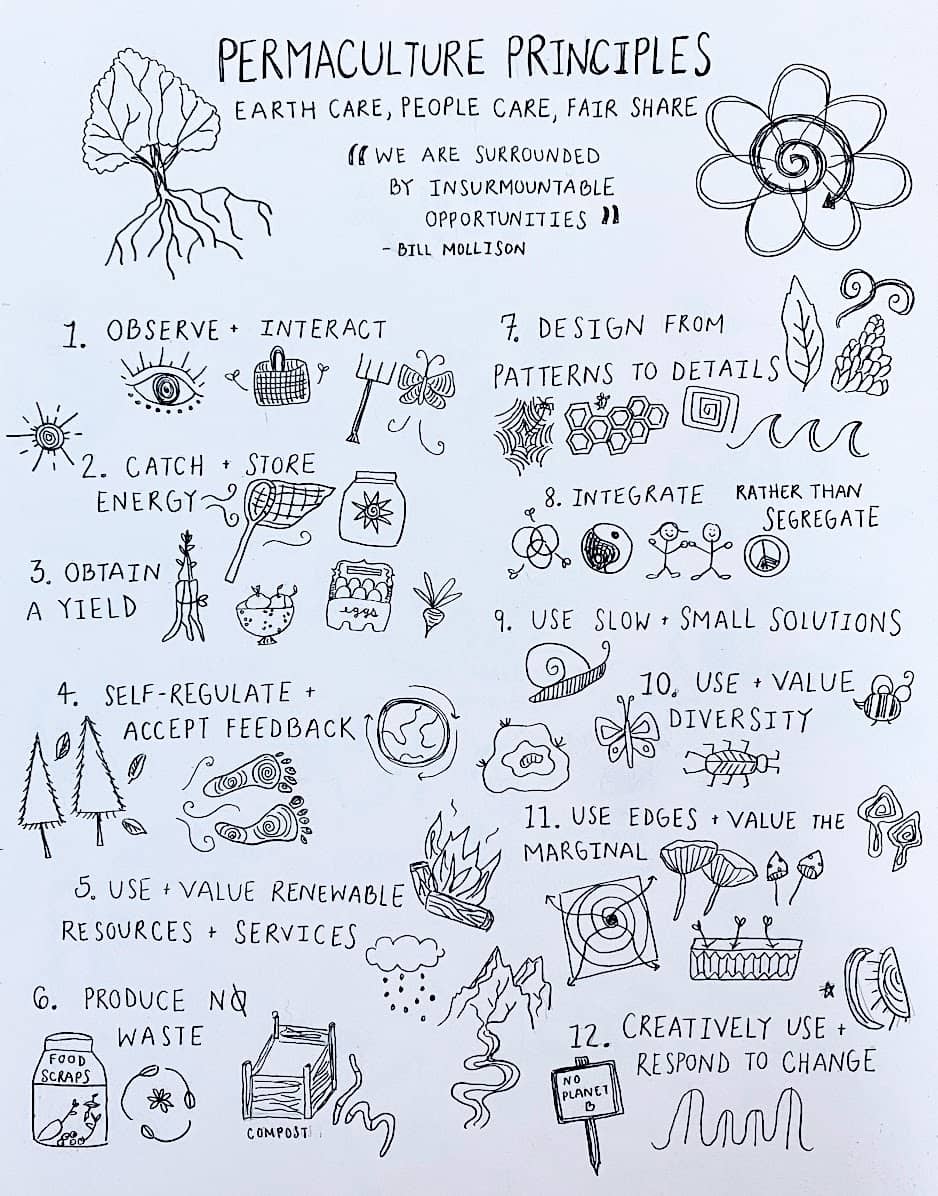 PERMACULTURE PRINCIPLES
EARTH CARE, PEOPLE CARE, FAIR SHARE
"WE ARE SURROUNDED
BY INSURMOUNTABLE
OPPORTUNITIES"
- BILL MOLLISON
1. OBSERVE + INTERACT
2. CATCH + STORE
ENERGY
3. OBTAIN
A YIELD
eggs
4. SELF-REGULATE +
ACCEPT FEEDBACK
5. USE + VALUE RENEWABLE
RESOURCES + SERVICES
6. PRODUCE NO
WASTE
FOOD
SCRAPS
COMPOST
7. DESIGN FROM
PATTERNS TO DETAILS
8. INTEGRATE RATHER THAN
SEGREGATE
9. USE SLOW + SMALL SOLUTIONS
10. USE + VALUE
DIVERSITY
11. USE EDGES + VALUE THE
MARGINAL
12. CREATIVELY USE +
RESPOND TO CHANGE
NO
PLANET
B